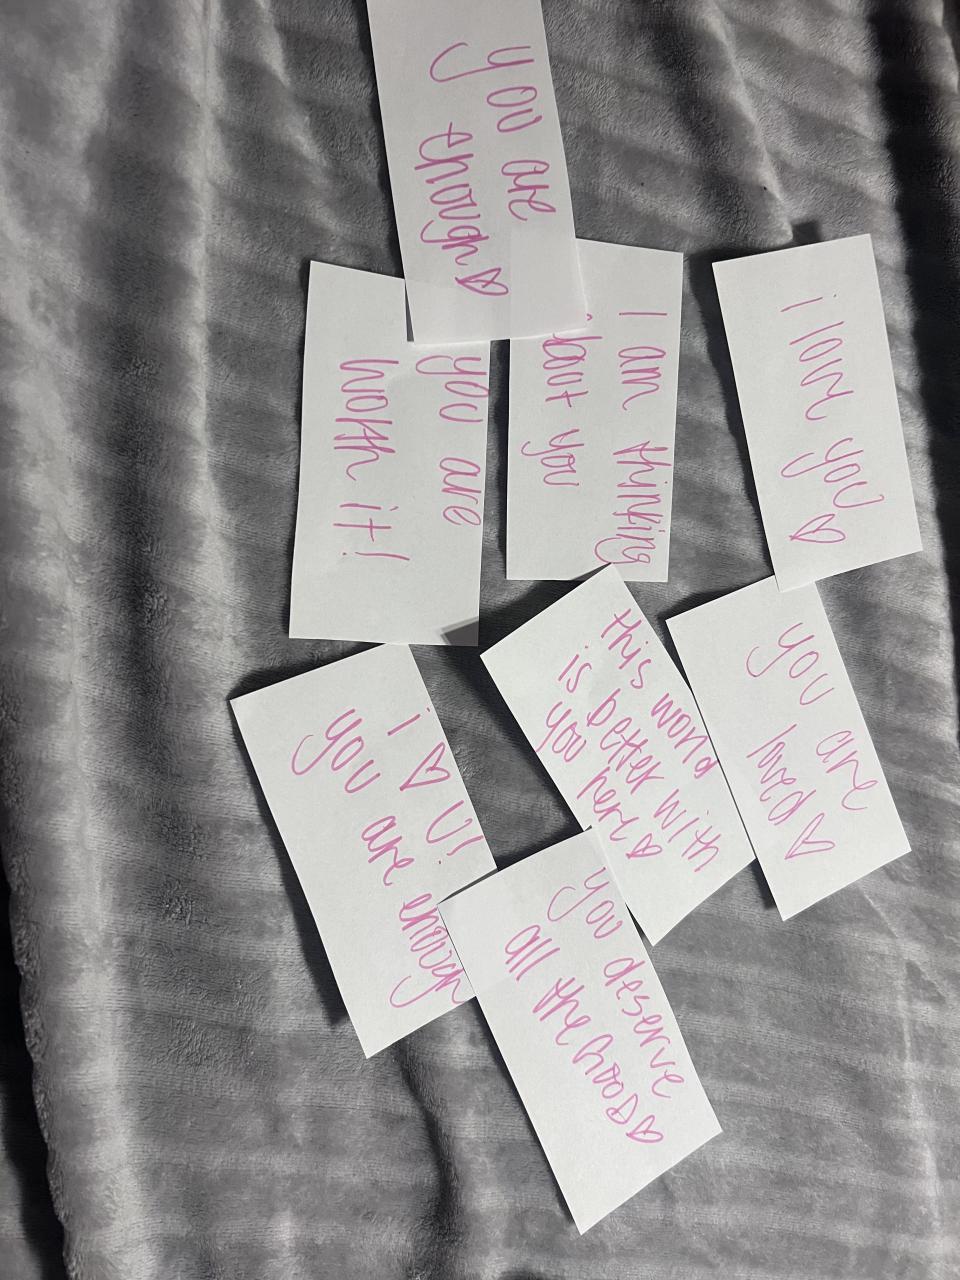 you are
enough
I am thinking
about you
you are
worth it!
i love you
you are
loved
this world
is better with
you here
i ♡ U!
you are enough
you deserve
all the good